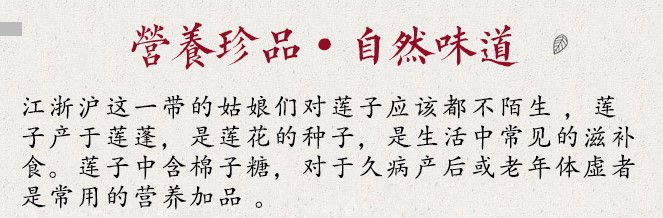 營養珍品·自然味道
江浙沪这一带的姑娘们对莲子应该都不陌生，莲
子产于莲蓬，是莲花的种子，是生活中常见的滋补
食。莲子中含棉子糖，对于久病产后或老年体虚者
是常用的营养加品。